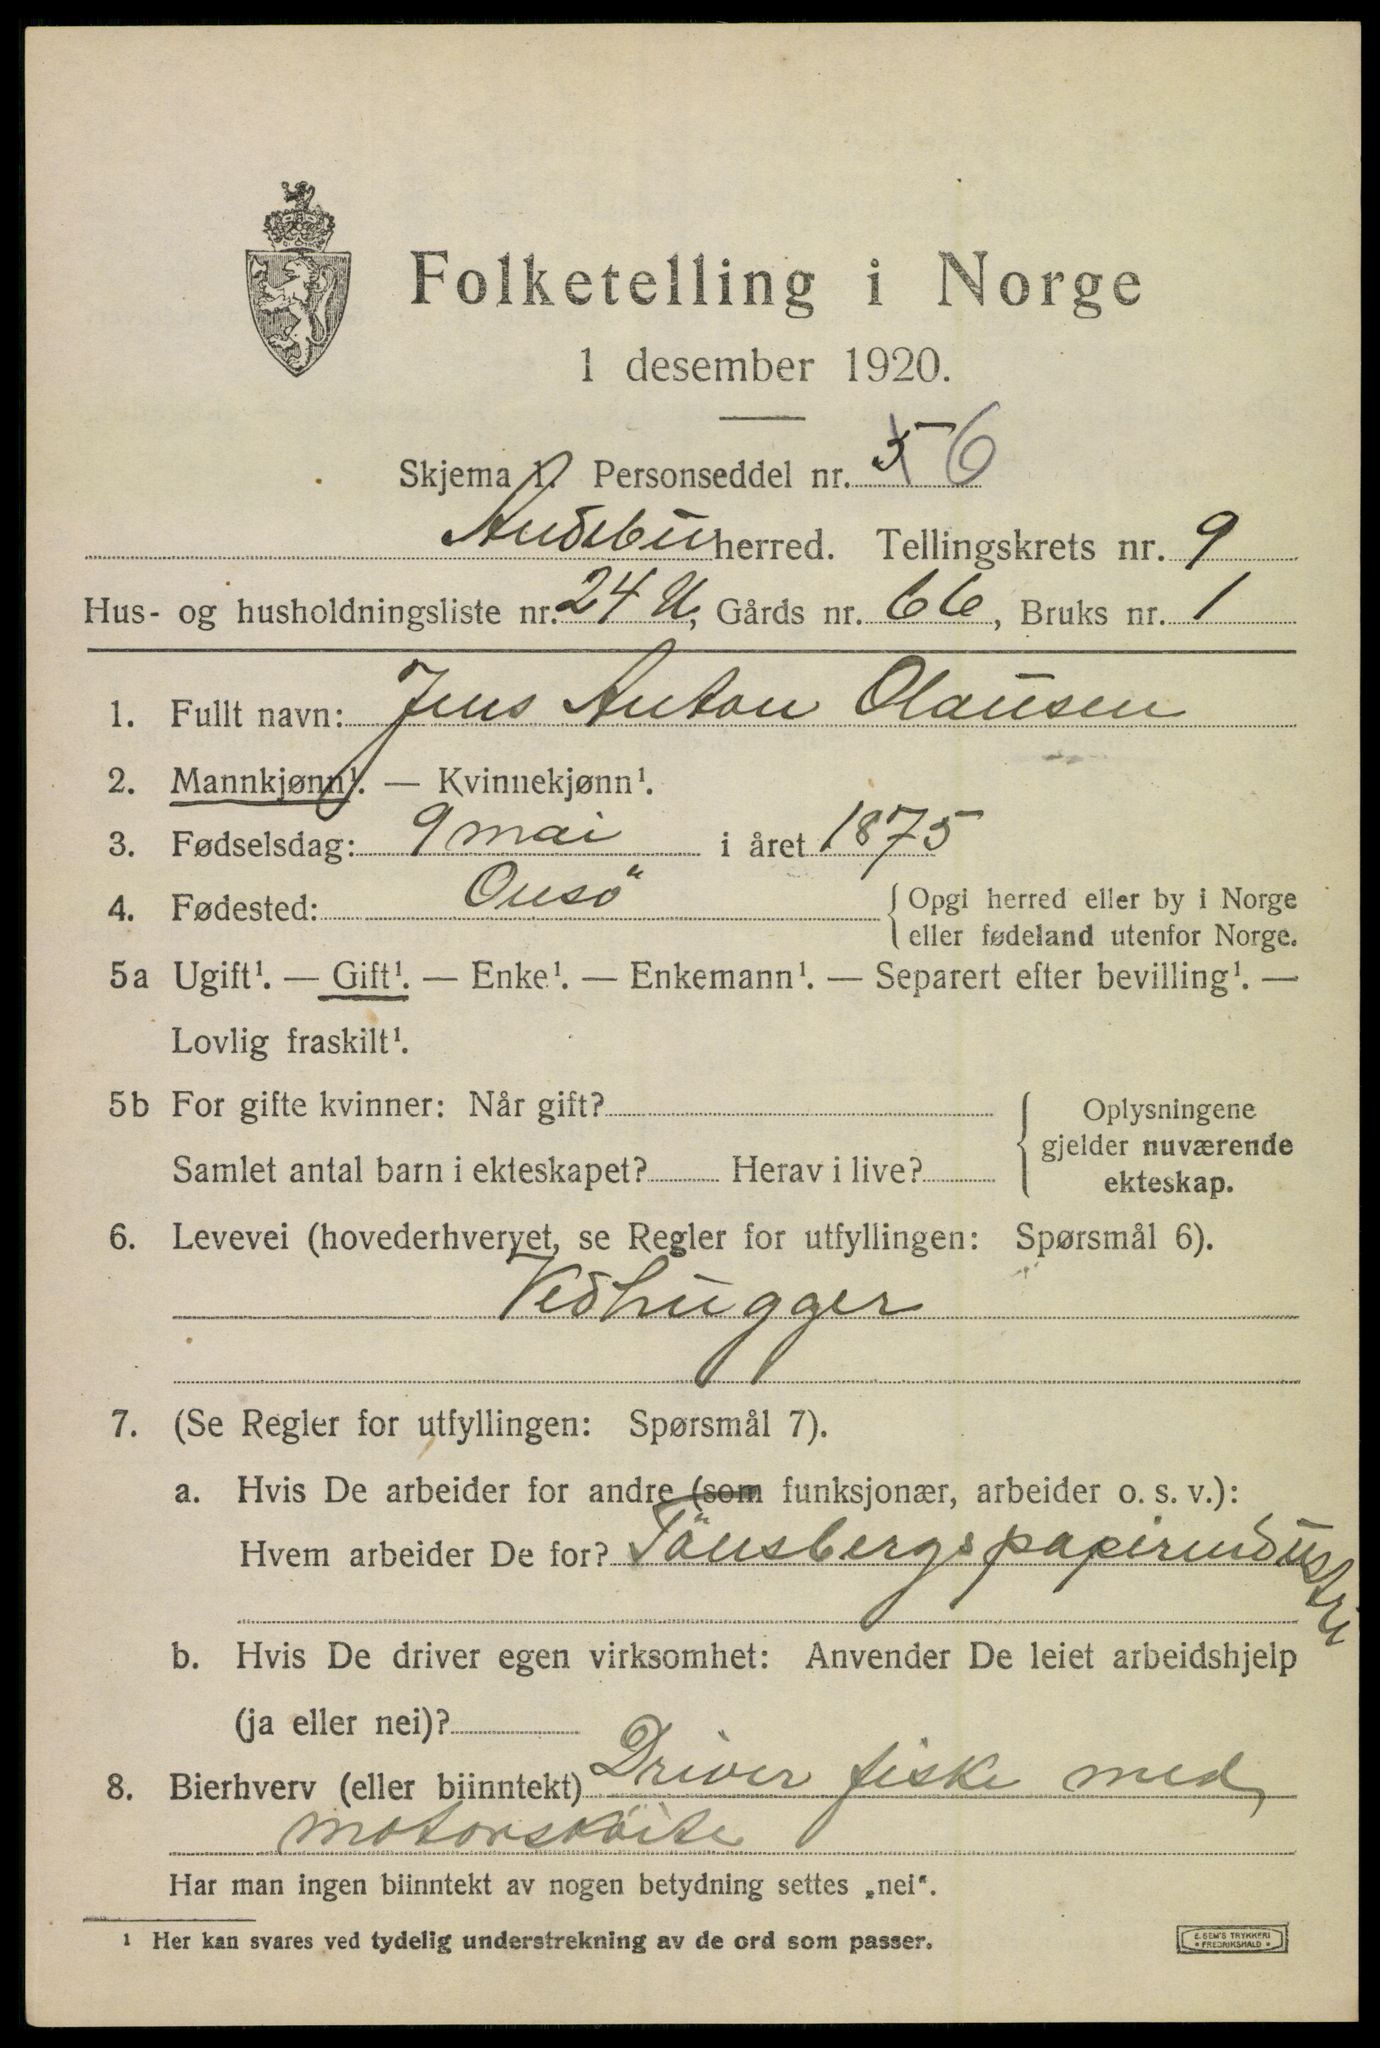 Folketelling i Norge
1 desember 1920.
Skjema 1. Personseddel nr. 5 6
Andebu herred. Tellingskrets nr. 9
Hus- og husholdningsliste nr. 24 U, Gårds nr. 66, Bruks nr. 1
1. Fullt navn: Jens Anton Olausen
2. Mannkjønn¹. — Kvinnekjønn¹.
3. Fødselsdag: 9 mai i året 1875
4. Fødested: Onsö { Opgi herred eller by i Norge
eller fødeland utenfor Norge.
5a Ugift¹. — Gift¹. — Enke¹. — Enkemann¹. — Separert efter bevilling¹. —
Lovlig fraskilt¹.
5b For gifte kvinner: Når gift? { Oplysningene
gjelder nuværende
Samlet antal barn i ekteskapet? Herav i live?
ekteskap.
6. Levevei (hovederhvervet, se Regler for utfyllingen: Spørsmål 6).
Vedhugger
7. (Se Regler for utfyllingen: Spørsmål 7).
a. Hvis De arbeider for andre (som funksjonær, arbeider o. s. v.):
Hvem arbeider De for? Tönsbergs papirindustri
b. Hvis De driver egen virksomhet: Anvender De leiet arbeidshjelp
(ja eller nei)?
8. Bierhverv (eller biinntekt) Driver fiske med
motorsköite
Har man ingen biinntekt av nogen betydning settes „nei".
¹ Her kan svares ved tydelig understrekning av de ord som passer.
E. SEM'S TRYKKERI
• FREDRIKSHALD •